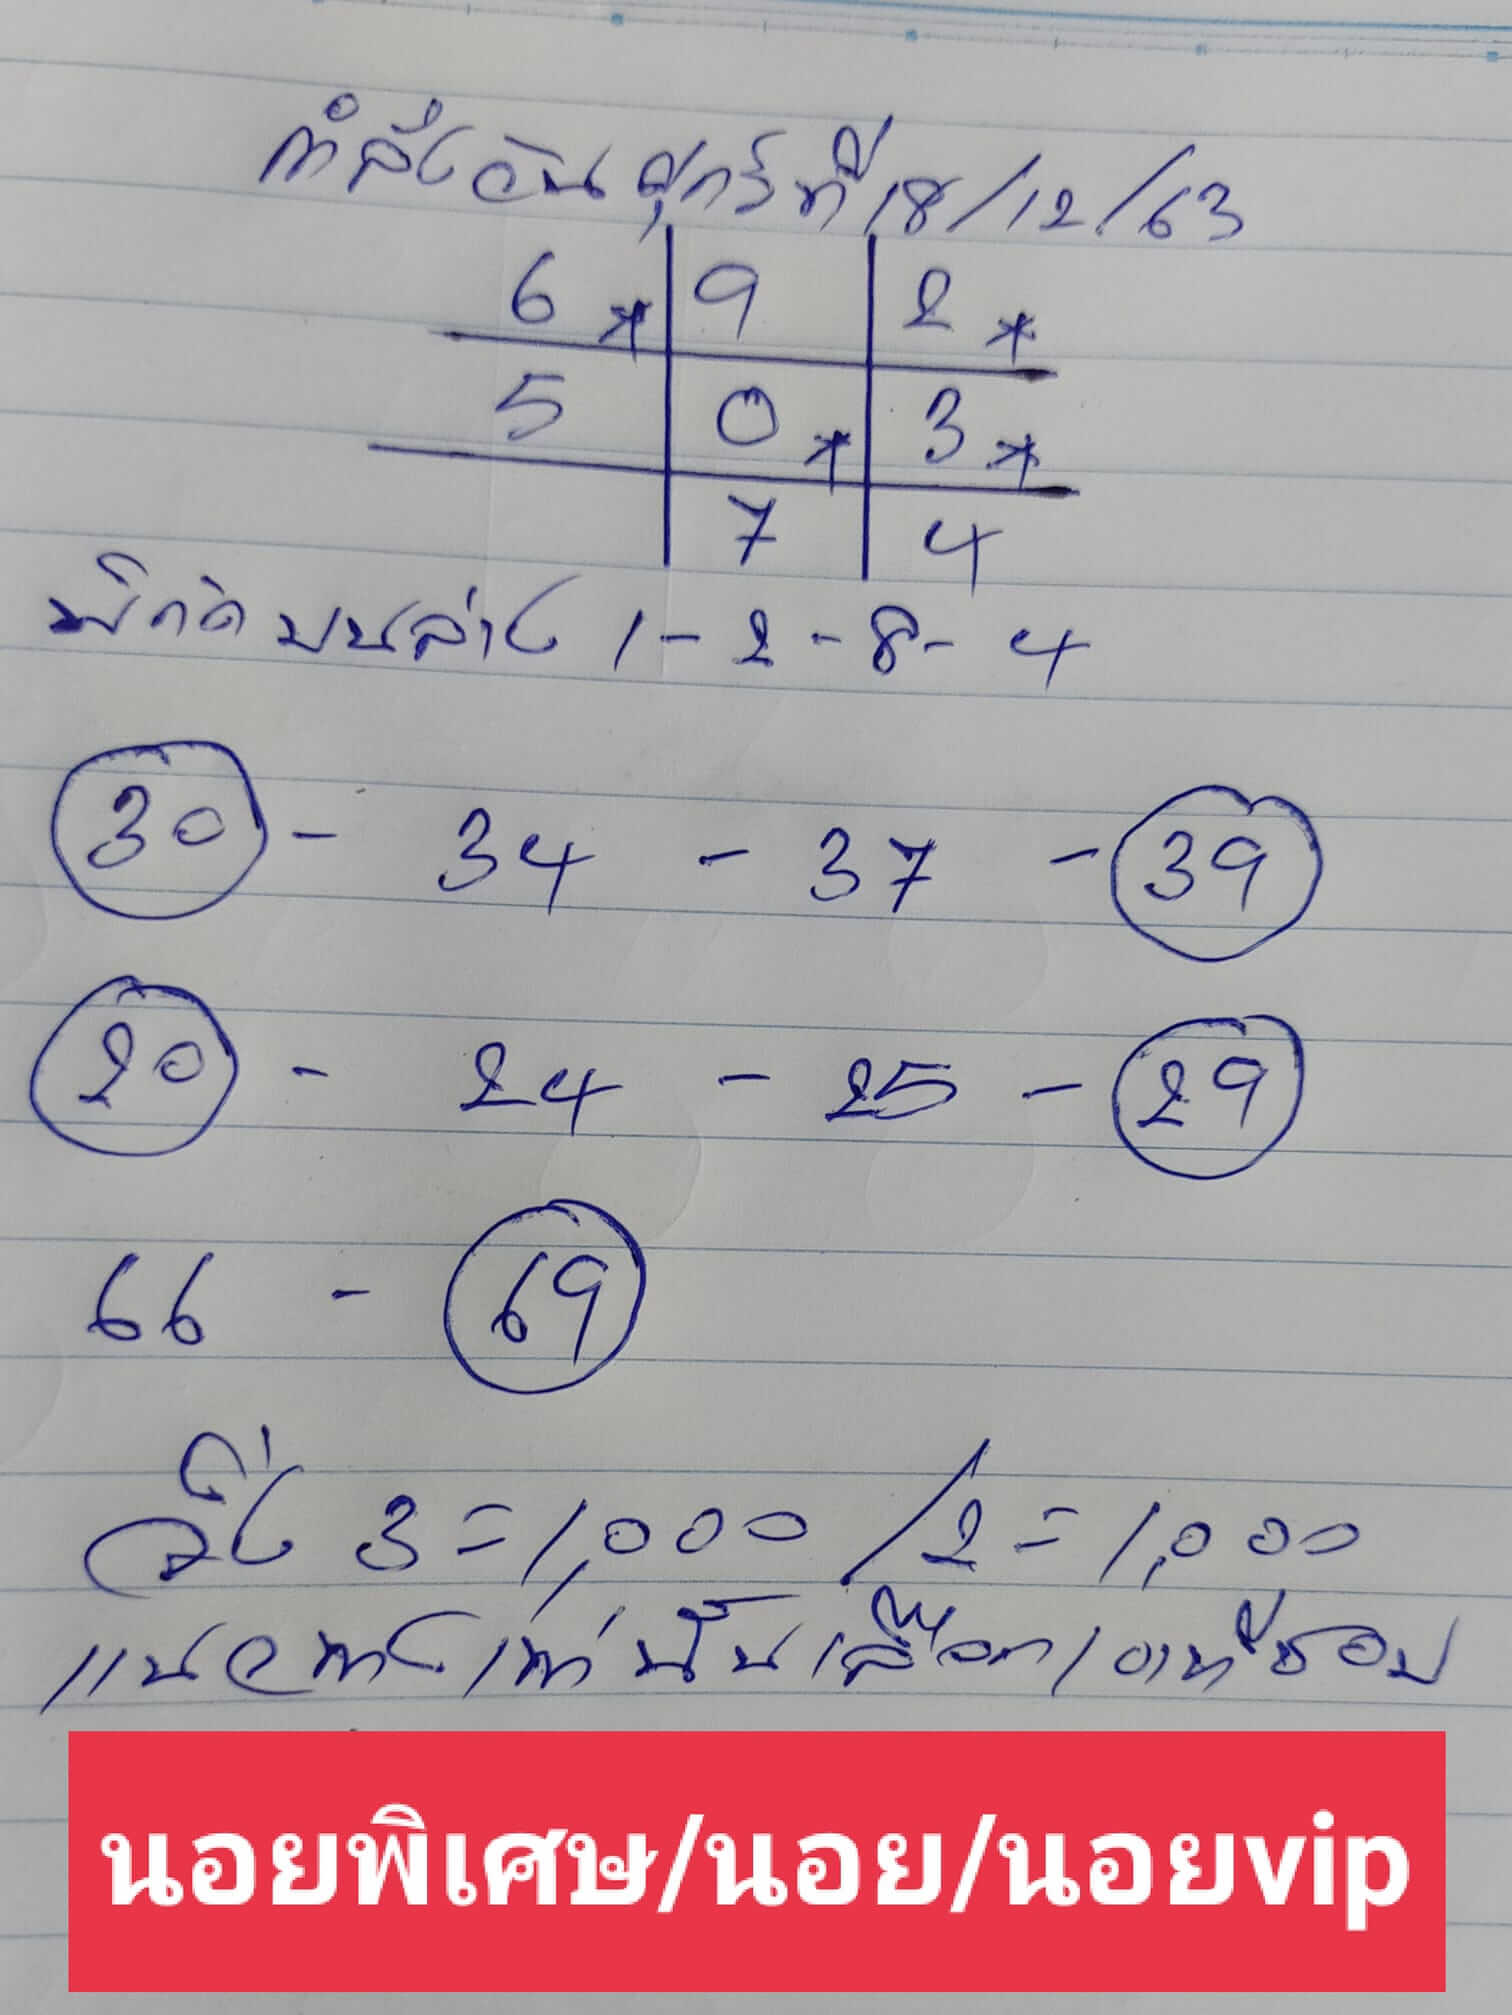 กำลังวันศุกร์ที่ 18/12/63
6 * 9 2 *
5 0 * 3 *
7 4
พิกัดบนล่าง 1-2-8-4
30 - 34 - 37 - 39
20 - 24 - 25 - 29
66 - 69
วิ่ง 3=1,000/2=1,000
แนวทางเท่านั้นเลือกเอาที่ชอบ
นอยพิเศษ/นอย/นอยvip